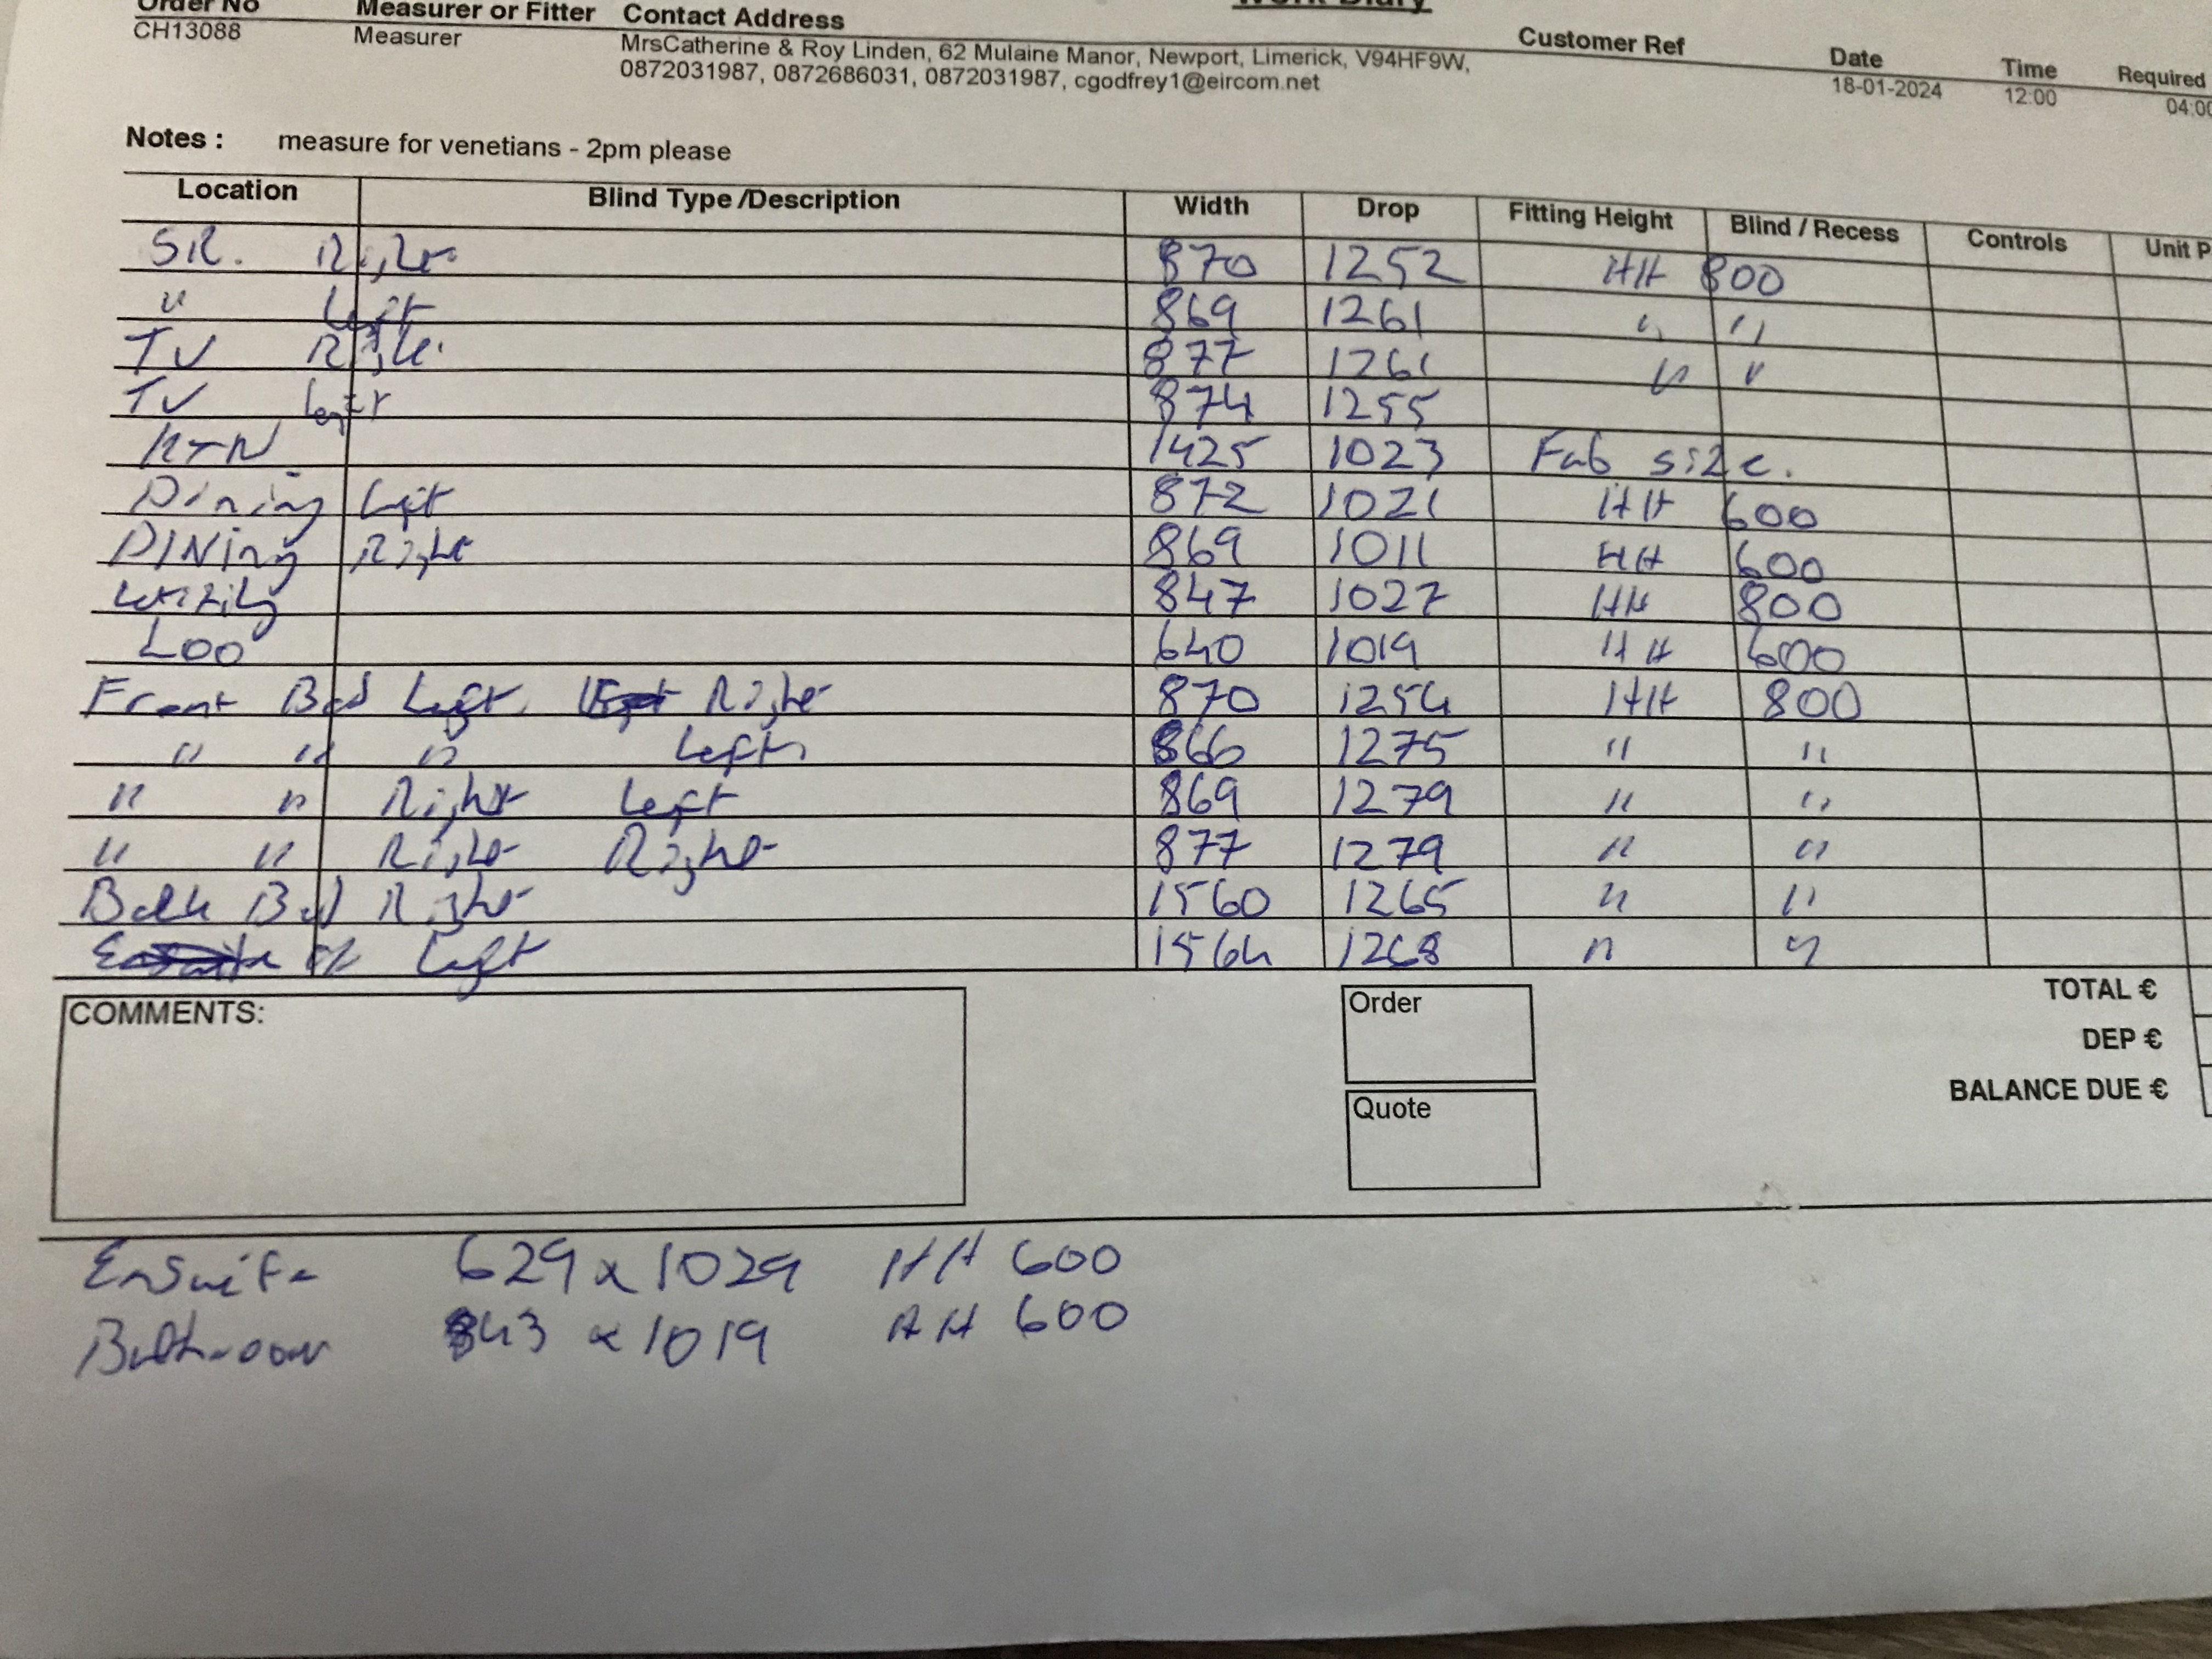 Order No Measurer or Fitter Contact Address Work Diary Customer Ref Date Time Required
CH13088 Measurer MrsCatherine & Roy Linden, 62 Mulaine Manor, Newport, Limerick, V94HF9W, 18-01-2024 12:00 04:00
0872031987, 0872686031, 0872031987, cgodfrey1@eircom.net
Notes : measure for venetians - 2pm please
Location Blind Type /Description Width Drop Fitting Height Blind / Recess Controls Unit P
SR. Right 870 1252 HH 800
" Left 869 1261 " "
TV Right 877 1261 " "
TV Left 874 1255
KTN 1425 1023 Fab size.
Dining Left 872 1021 HH 600
DINing Right 869 1011 HH 600
Utility 847 1027 HH 800
LOO 640 1019 HH 600
Front Bed Left Right 870 1254 HH 800
" " " Left 866 1275 " "
" " Right Left 869 1279 " "
" " Right Right 877 1279 " "
Back Bed Right 1560 1265 " "
" Left 1564 1268 " "
COMMENTS:
Order
Quote
TOTAL €
DEP €
BALANCE DUE €
Ensuite 629 x 1029 HH 600
Bathroom 843 x 1019 HH 600